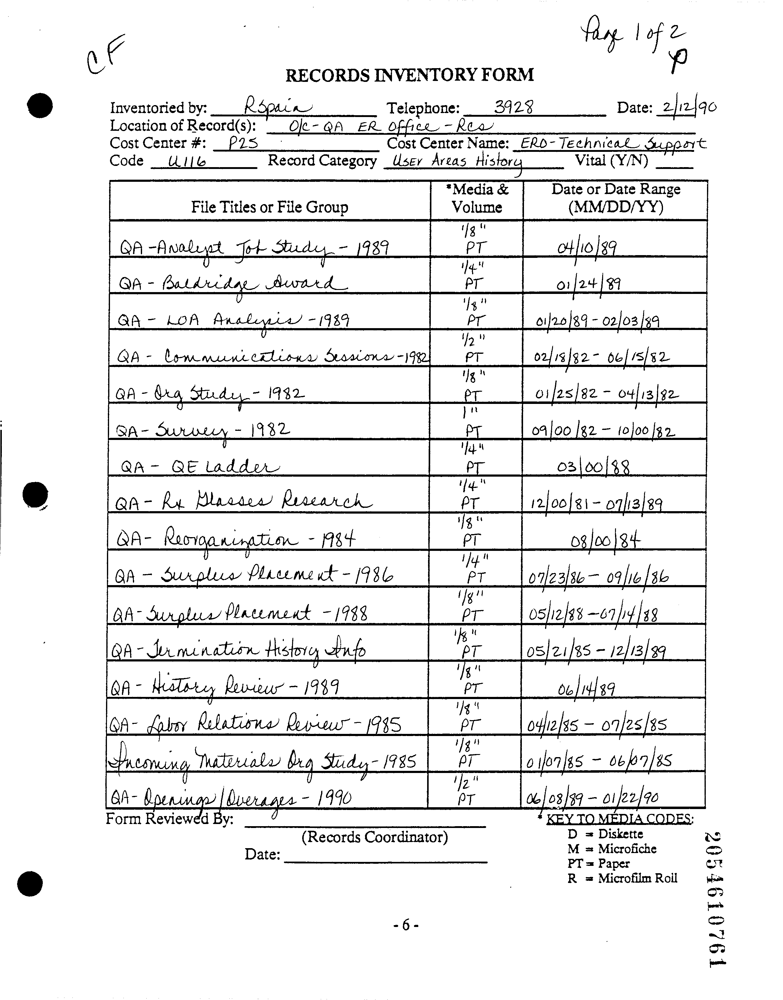 Page 1 of 2
CF
RECORDS INVENTORY FORM
Inventoried by: RSpain Telephone: 3928 Date: 2/12/90
Location of Record(s): O/C - QA ER Office - Rcs
Cost Center #: P25 Cost Center Name: ERO - Technical Support
Code U116 Record Category User Areas History Vital (Y/N)
File Titles or File Group *Media & Volume Date or Date Range (MM/DD/YY)
QA - Analyst Job Study - 1989 1/8" PT 04/10/89
QA - Baldridge Award 1/4" PT 01/24/89
QA - LOA Analysis - 1989 1/8" PT 01/20/89 - 02/03/89
QA - Communications Sessions - 1982 1/2" PT 02/18/82 - 06/15/82
QA - Org Study - 1982 1/8" PT 01/25/82 - 04/13/82
QA - Survey - 1982 1" PT 09/00/82 - 10/00/82
QA - QE Ladder 1/4" PT 03/00/88
QA - Rx Glasses Research 1/4" PT 12/00/81 - 07/13/89
QA - Reorganization - 1984 1/8" PT 08/00/84
QA - Surplus Placement - 1986 1/4" PT 07/23/86 - 09/16/86
QA - Surplus Placement - 1988 1/8" PT 05/12/88 - 07/14/88
QA - Termination History Info 1/8" PT 05/21/85 - 12/13/89
QA - History Review - 1989 1/8" PT 06/14/89
QA - Labor Relations Review - 1985 1/8" PT 04/12/85 - 07/25/85
Incoming Materials Org Study - 1985 1/8" PT 01/07/85 - 06/07/85
QA - Openings/Overages - 1990 1/2" PT 06/08/89 - 01/22/90
Form Reviewed By:
(Records Coordinator)
Date:
* KEY TO MEDIA CODES:
D = Diskette
M = Microfiche
PT = Paper
R = Microfilm Roll
- 6 -
2054610761